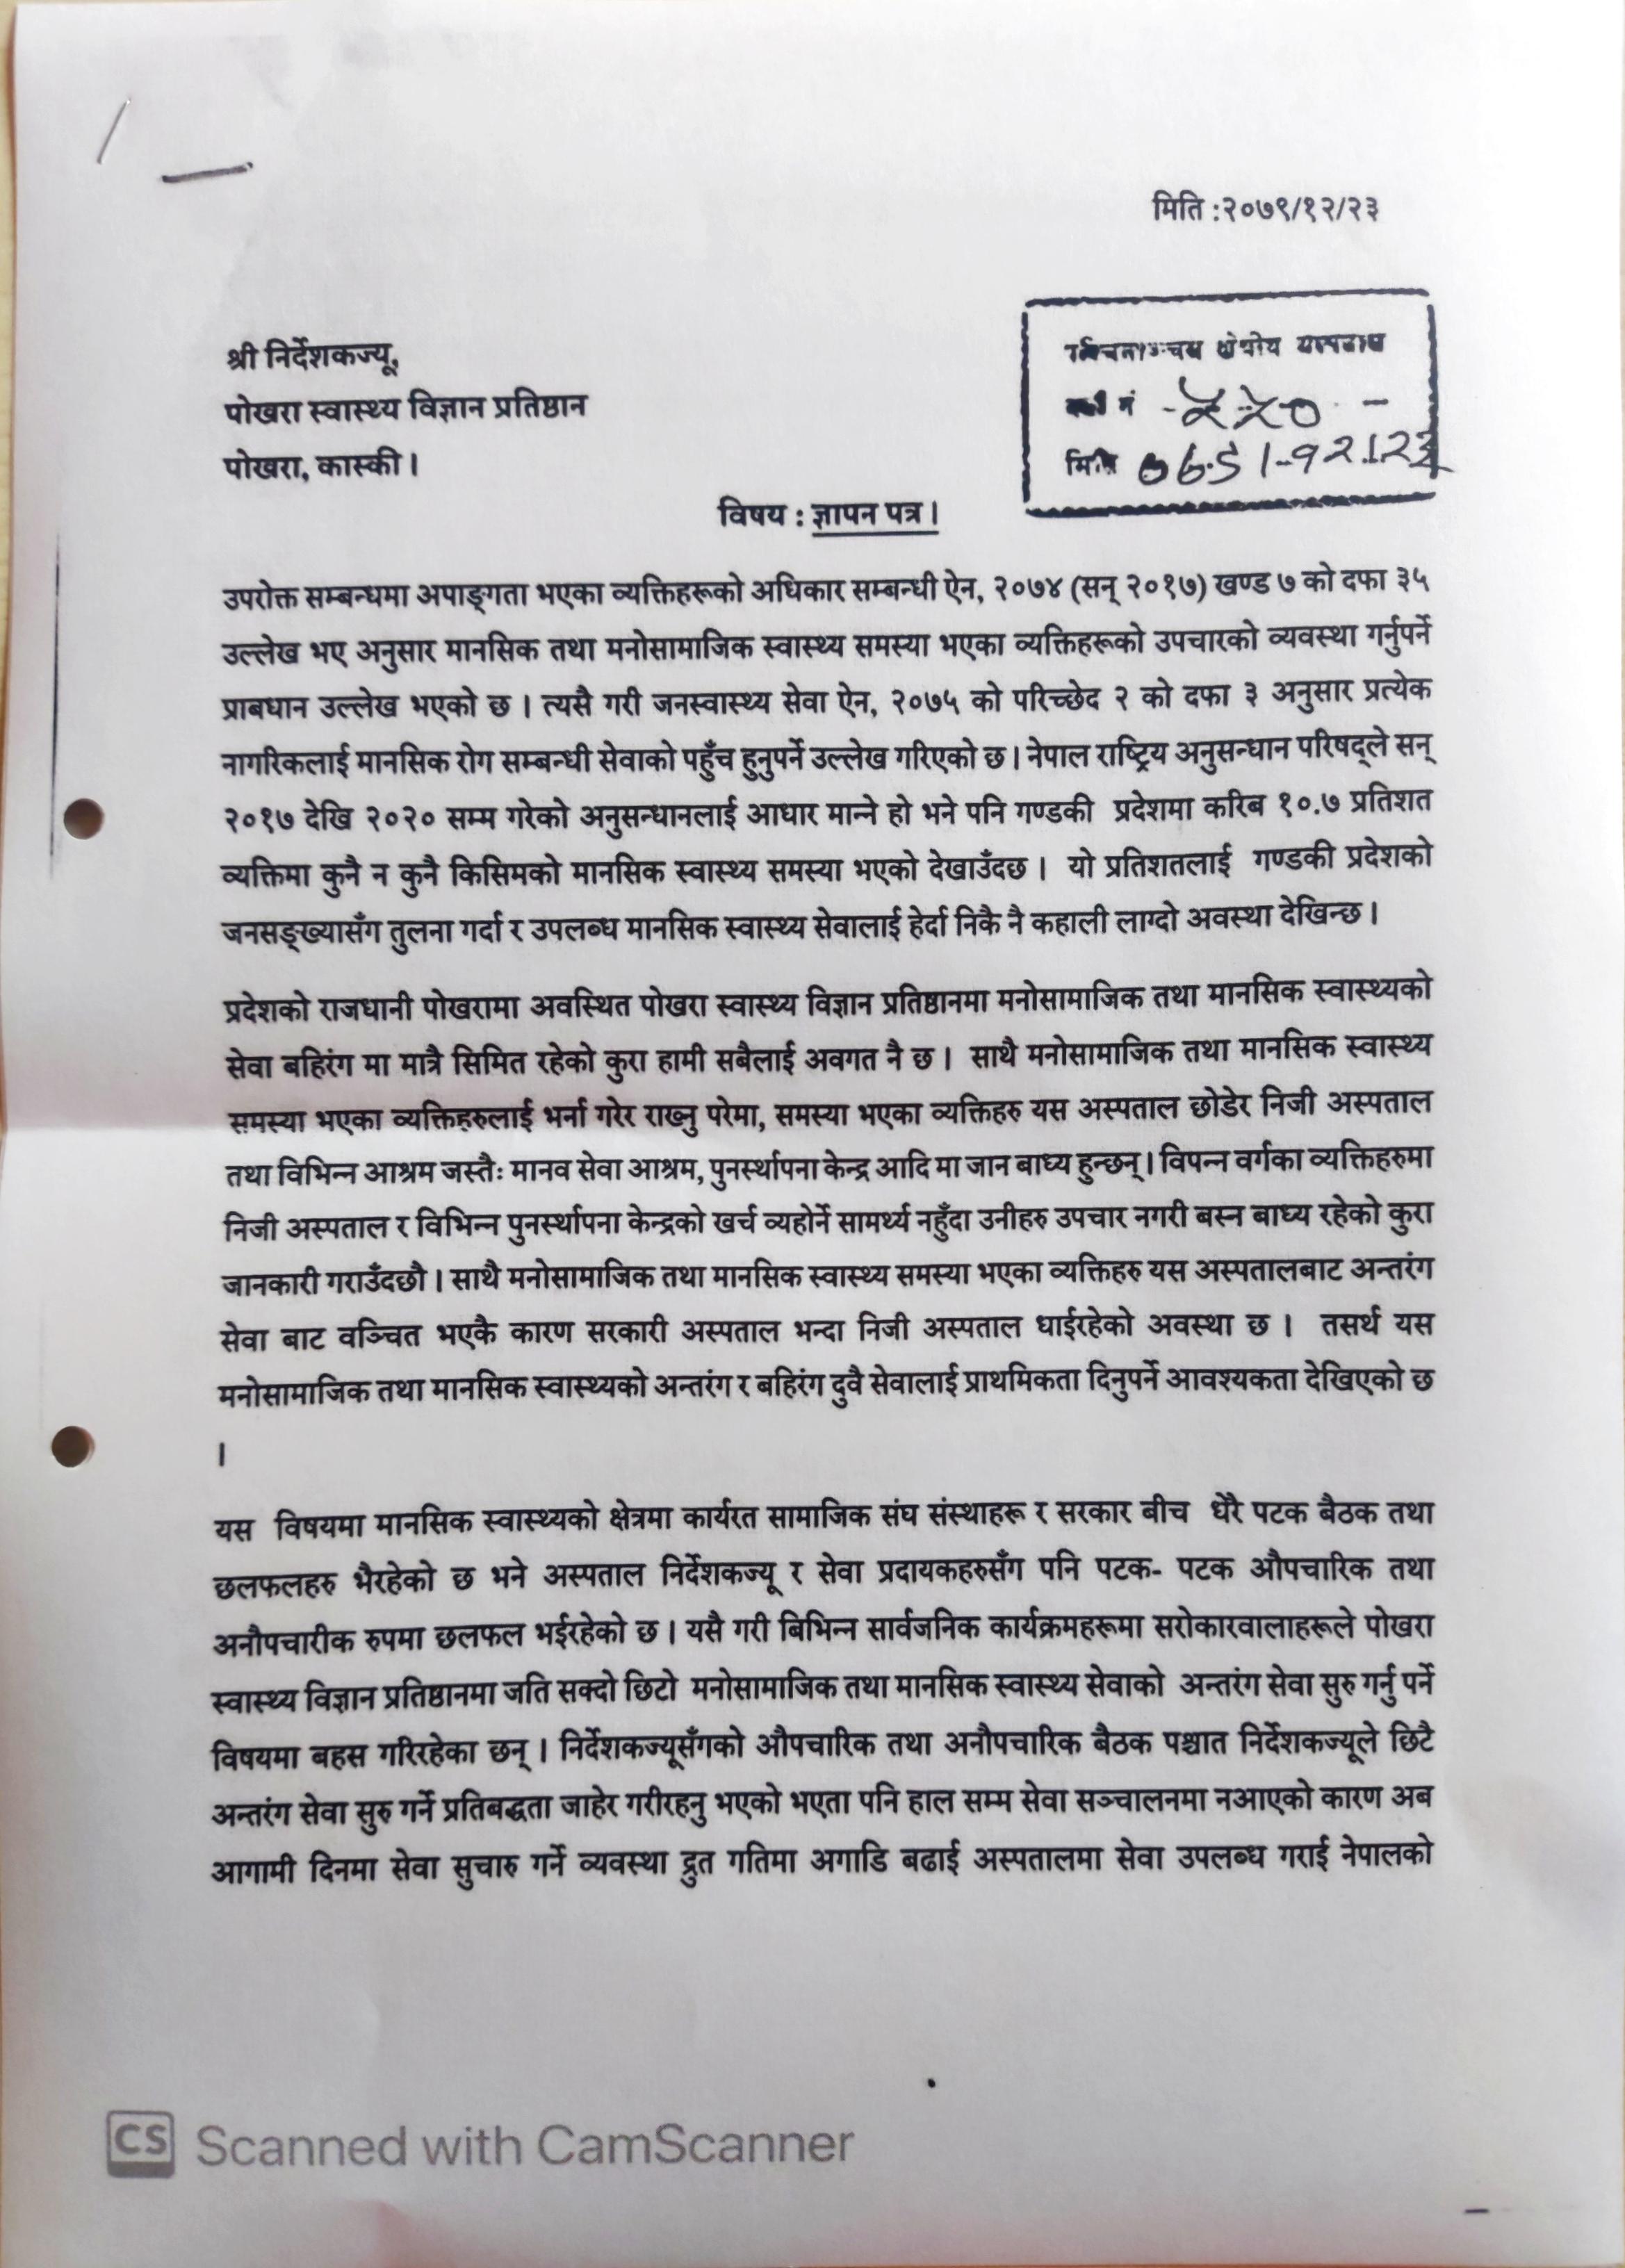 मिति :२०७९/१२/२३
श्री निर्देशकज्यू,
पोखरा स्वास्थ्य विज्ञान प्रतिष्ठान
पोखरा, कास्की।
मिति
विषय : ज्ञापन पत्र।
उपरोक्त सम्बन्धमा अपाङ्गता भएका व्यक्तिहरूको अधिकार सम्बन्धी ऐन, २०७४ (सन् २०१७) खण्ड ७ को दफा ३५
उल्लेख भए अनुसार मानसिक तथा मनोसामाजिक स्वास्थ्य समस्या भएका व्यक्तिहरूको उपचारको व्यवस्था गर्नुपर्ने
प्राबधान उल्लेख भएको छ । त्यसै गरी जनस्वास्थ्य सेवा ऐन, २०७५ को परिच्छेद २ को दफा ३ अनुसार प्रत्येक
नागरिकलाई मानसिक रोग सम्बन्धी सेवाको पहुँच हुनुपर्ने उल्लेख गरिएको छ। नेपाल राष्ट्रिय अनुसन्धान परिषद्ले सन्
२०१७ देखि २०२० सम्म गरेको अनुसन्धानलाई आधार मान्ने हो भने पनि गण्डकी प्रदेशमा करिब १०.७ प्रतिशत
व्यक्तिमा कुनै न कुनै किसिमको मानसिक स्वास्थ्य समस्या भएको देखाउँदछ । यो प्रतिशतलाई गण्डकी प्रदेशको
जनसङ्ख्यासँग तुलना गर्दा र उपलब्ध मानसिक स्वास्थ्य सेवालाई हेर्दा निकै नै कहाली लाग्दो अवस्था देखिन्छ।
प्रदेशको राजधानी पोखरामा अवस्थित पोखरा स्वास्थ्य विज्ञान प्रतिष्ठानमा मनोसामाजिक तथा मानसिक स्वास्थ्यको
सेवा बहिरंग मा मात्रै सिमित रहेको कुरा हामी सबैलाई अवगत नै छ । साथै मनोसामाजिक तथा मानसिक स्वास्थ्य
समस्या भएका व्यक्तिहरुलाई भर्ना गरेर राख्नु परेमा, समस्या भएका व्यक्तिहरु यस अस्पताल छोडेर निजी अस्पताल
तथा विभिन्न आश्रम जस्तैः मानव सेवा आश्रम, पुनर्स्थापना केन्द्र आदि मा जान बाध्य हुन्छन्। विपन्न वर्गका व्यक्तिहरुमा
निजी अस्पताल र विभिन्न पुनर्स्थापना केन्द्रको खर्च व्यहोर्ने सामर्थ्य नहुँदा उनीहरु उपचार नगरी बस्न बाध्य रहेको कुरा
जानकारी गराउँदछौ । साथै मनोसामाजिक तथा मानसिक स्वास्थ्य समस्या भएका व्यक्तिहरु यस अस्पतालबाट अन्तरंग
सेवा बाट वञ्चित भएकै कारण सरकारी अस्पताल भन्दा निजी अस्पताल धाईरहेको अवस्था छ । तसर्थ यस
मनोसामाजिक तथा मानसिक स्वास्थ्यको अन्तरंग र बहिरंग दुवै सेवालाई प्राथमिकता दिनुपर्ने आवश्यकता देखिएको छ
।
यस विषयमा मानसिक स्वास्थ्यको क्षेत्रमा कार्यरत सामाजिक संघ संस्थाहरू र सरकार बीच धेरै पटक बैठक तथा
छलफलहरु भैरहेको छ भने अस्पताल निर्देशकज्यू र सेवा प्रदायकहरुसँग पनि पटक- पटक औपचारिक तथा
अनौपचारीक रुपमा छलफल भईरहेको छ । यसै गरी बिभिन्न सार्वजनिक कार्यक्रमहरूमा सरोकारवालाहरूले पोखरा
स्वास्थ्य विज्ञान प्रतिष्ठानमा जति सक्दो छिटो मनोसामाजिक तथा मानसिक स्वास्थ्य सेवाको अन्तरंग सेवा सुरु गर्नु पर्ने
विषयमा बहस गरिरहेका छन् । निर्देशकज्यूसँगको औपचारिक तथा अनौपचारिक बैठक पश्चात निर्देशकज्यूले छिटै
अन्तरंग सेवा सुरु गर्ने प्रतिबद्धता जाहेर गरीरहनु भएको भएता पनि हाल सम्म सेवा सञ्चालनमा नआएको कारण अब
आगामी दिनमा सेवा सुचारु गर्ने व्यवस्था द्रुत गतिमा अगाडि बढाई अस्पतालमा सेवा उपलब्ध गराई नेपालको
CS Scanned with CamScanner